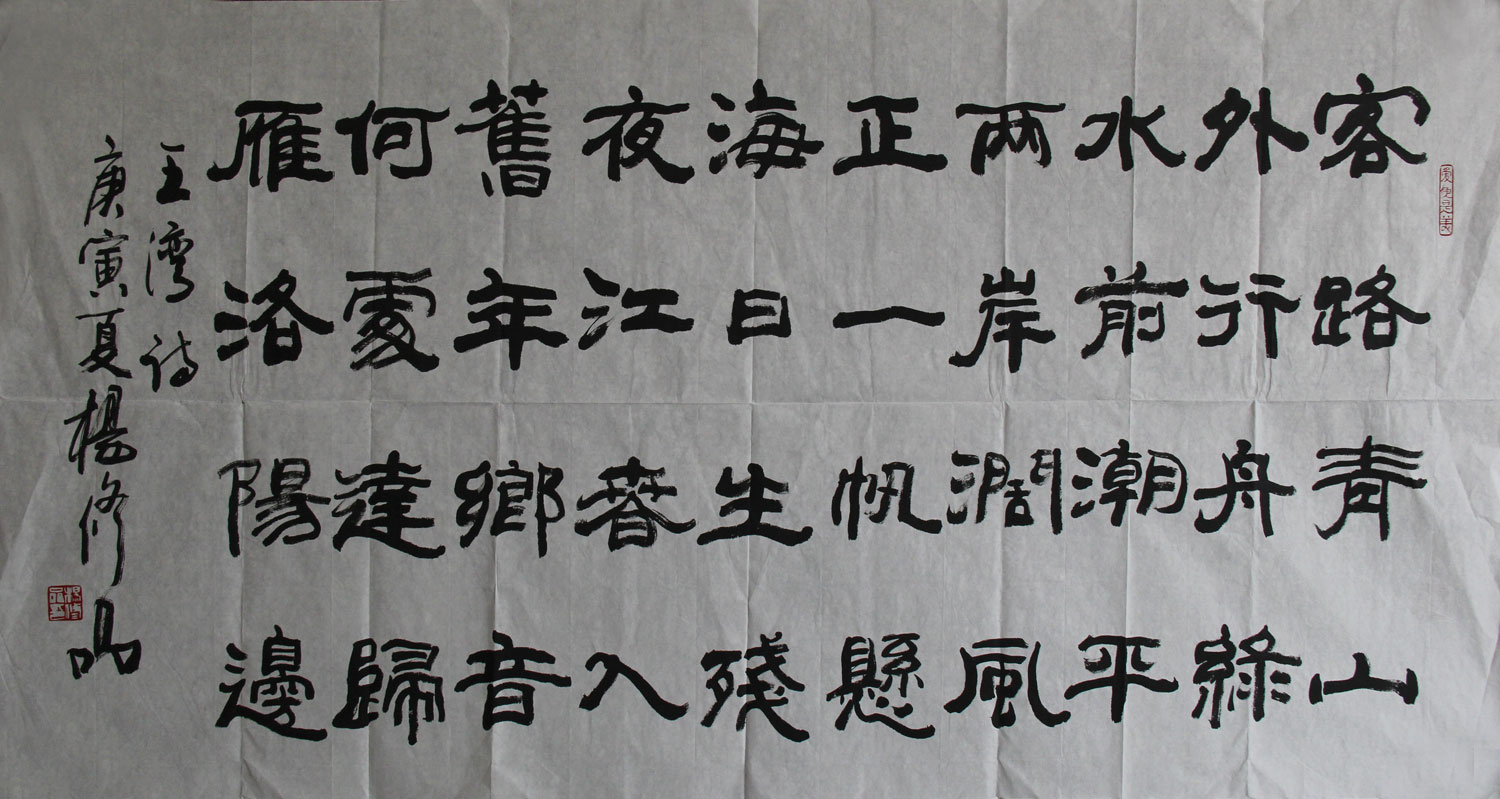 客路青山
外行舟綠
水前潮平
兩岸濶風
正一帆懸
海日生殘
夜江春入
舊年鄉音
何處達歸
雁洛陽邊
王湾诗
庚寅夏楊修